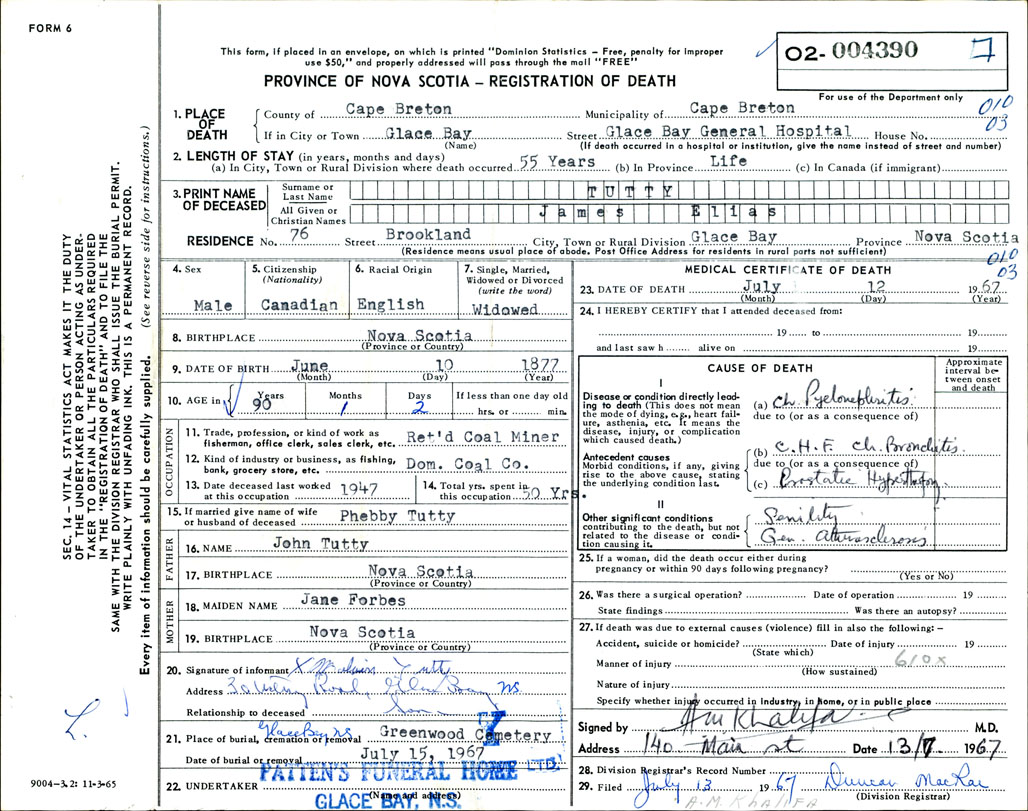 FORM 6
This form, if placed in an envelope, on which is printed "Dominion Statistics – Free, penalty for improper
use $50," and properly addressed will pass through the mail "FREE"
PROVINCE OF NOVA SCOTIA – REGISTRATION OF DEATH
O2-004390
For use of the Department only
010
03
1. PLACE OF DEATH
County of Cape Breton Municipality of Cape Breton
If in City or Town Glace Bay Street Glace Bay General Hospital House No.
(Name) (If death occurred in a hospital or institution, give the name instead of street and number)
2. LENGTH OF STAY (in years, months and days)
(a) In City, Town or Rural Division where death occurred 55 Years (b) In Province Life (c) In Canada (if immigrant)
3. PRINT NAME OF DECEASED
Surname or Last Name TUTTY
All Given or Christian Names James Elias
RESIDENCE No. 76 Street Brookland City, Town or Rural Division Glace Bay Province Nova Scotia
(Residence means usual place of abode. Post Office Address for residents in rural parts not sufficient)
010
03
4. Sex
Male
5. Citizenship
(Nationality)
Canadian
6. Racial Origin
English
7. Single, Married,
Widowed or Divorced
(write the word)
Widowed
8. BIRTHPLACE Nova Scotia
(Province or Country)
9. DATE OF BIRTH June 10 1877
(Month) (Day) (Year)
10. AGE in Years Months Days If less than one day old
90 1 2 hrs. or min.
OCCUPATION
11. Trade, profession, or kind of work as
fisherman, office clerk, sales clerk, etc. Ret'd Coal Miner
12. Kind of industry or business, as fishing,
bank, grocery store, etc. Dom. Coal Co.
13. Date deceased last worked
at this occupation 1947
14. Total yrs. spent in
this occupation 50 Yrs.
15. If married give name of wife
or husband of deceased Phebby Tutty
FATHER
16. NAME John Tutty
17. BIRTHPLACE Nova Scotia
(Province or Country)
MOTHER
18. MAIDEN NAME Jane Forbes
19. BIRTHPLACE Nova Scotia
(Province or Country)
20. Signature of informant X Tutty
Address Road, NS
Relationship to deceased Son
21. Place of burial, cremation or removal Glace Bay NS Greenwood Cemetery
Date of burial or removal July 15, 1967
22. UNDERTAKER PATTEN'S FUNERAL HOME LTD.
(Name and address)
GLACE BAY, N.S.
MEDICAL CERTIFICATE OF DEATH
23. DATE OF DEATH July 12 1967
(Month) (Day) (Year)
24. I HEREBY CERTIFY that I attended deceased from:
19 to 19
and last saw h alive on 19
CAUSE OF DEATH
Approximate
interval be-
tween onset
and death
I
Disease or condition directly lead-
ing to death (This does not mean
the mode of dying, e.g., heart fail-
ure, asthenia, etc. It means the
disease, injury, or complication
which caused death.)
(a) Ch. Pyelonephritis
due to (or as a consequence of)
Antecedent causes
Morbid conditions, if any, giving
rise to the above cause, stating
the underlying condition last.
(b) C.H.F. Ch. Bronchitis.
due to (or as a consequence of)
(c) Prostatic
II
Other significant conditions
contributing to the death, but not
related to the disease or condi-
tion causing it.
Senility
Gen.
25. If a woman, did the death occur either during
pregnancy or within 90 days following pregnancy?
(Yes or No)
26. Was there a surgical operation? Date of operation 19
State findings Was there an autopsy?
27. If death was due to external causes (violence) fill in also the following: –
Accident, suicide or homicide? Date of injury 19
(State which)
Manner of injury 610x
(How sustained)
Nature of injury
Specify whether injury occurred in industry, in home, or in public place
Signed by Am Khalifa M.D.
Address 140 Main st Date 13/7 1967
28. Division Registrar's Record Number
29. Filed July 13 1967 Duncan MacRae
(Division Registrar)
A.M. KHALIFA
SEC. 14 – VITAL STATISTICS ACT MAKES IT THE DUTY
OF THE UNDERTAKER OR PERSON ACTING AS UNDER-
TAKER TO OBTAIN ALL THE PARTICULARS REQUIRED
IN THE "REGISTRATION OF DEATH" AND TO FILE THE
SAME WITH THE DIVISION REGISTRAR WHO SHALL ISSUE THE BURIAL PERMIT.
WRITE PLAINLY WITH UNFADING INK. THIS IS A PERMANENT RECORD.
Every item of information should be carefully supplied. (See reverse side for instructions.)
L.
9004–3.2: 11-3-65